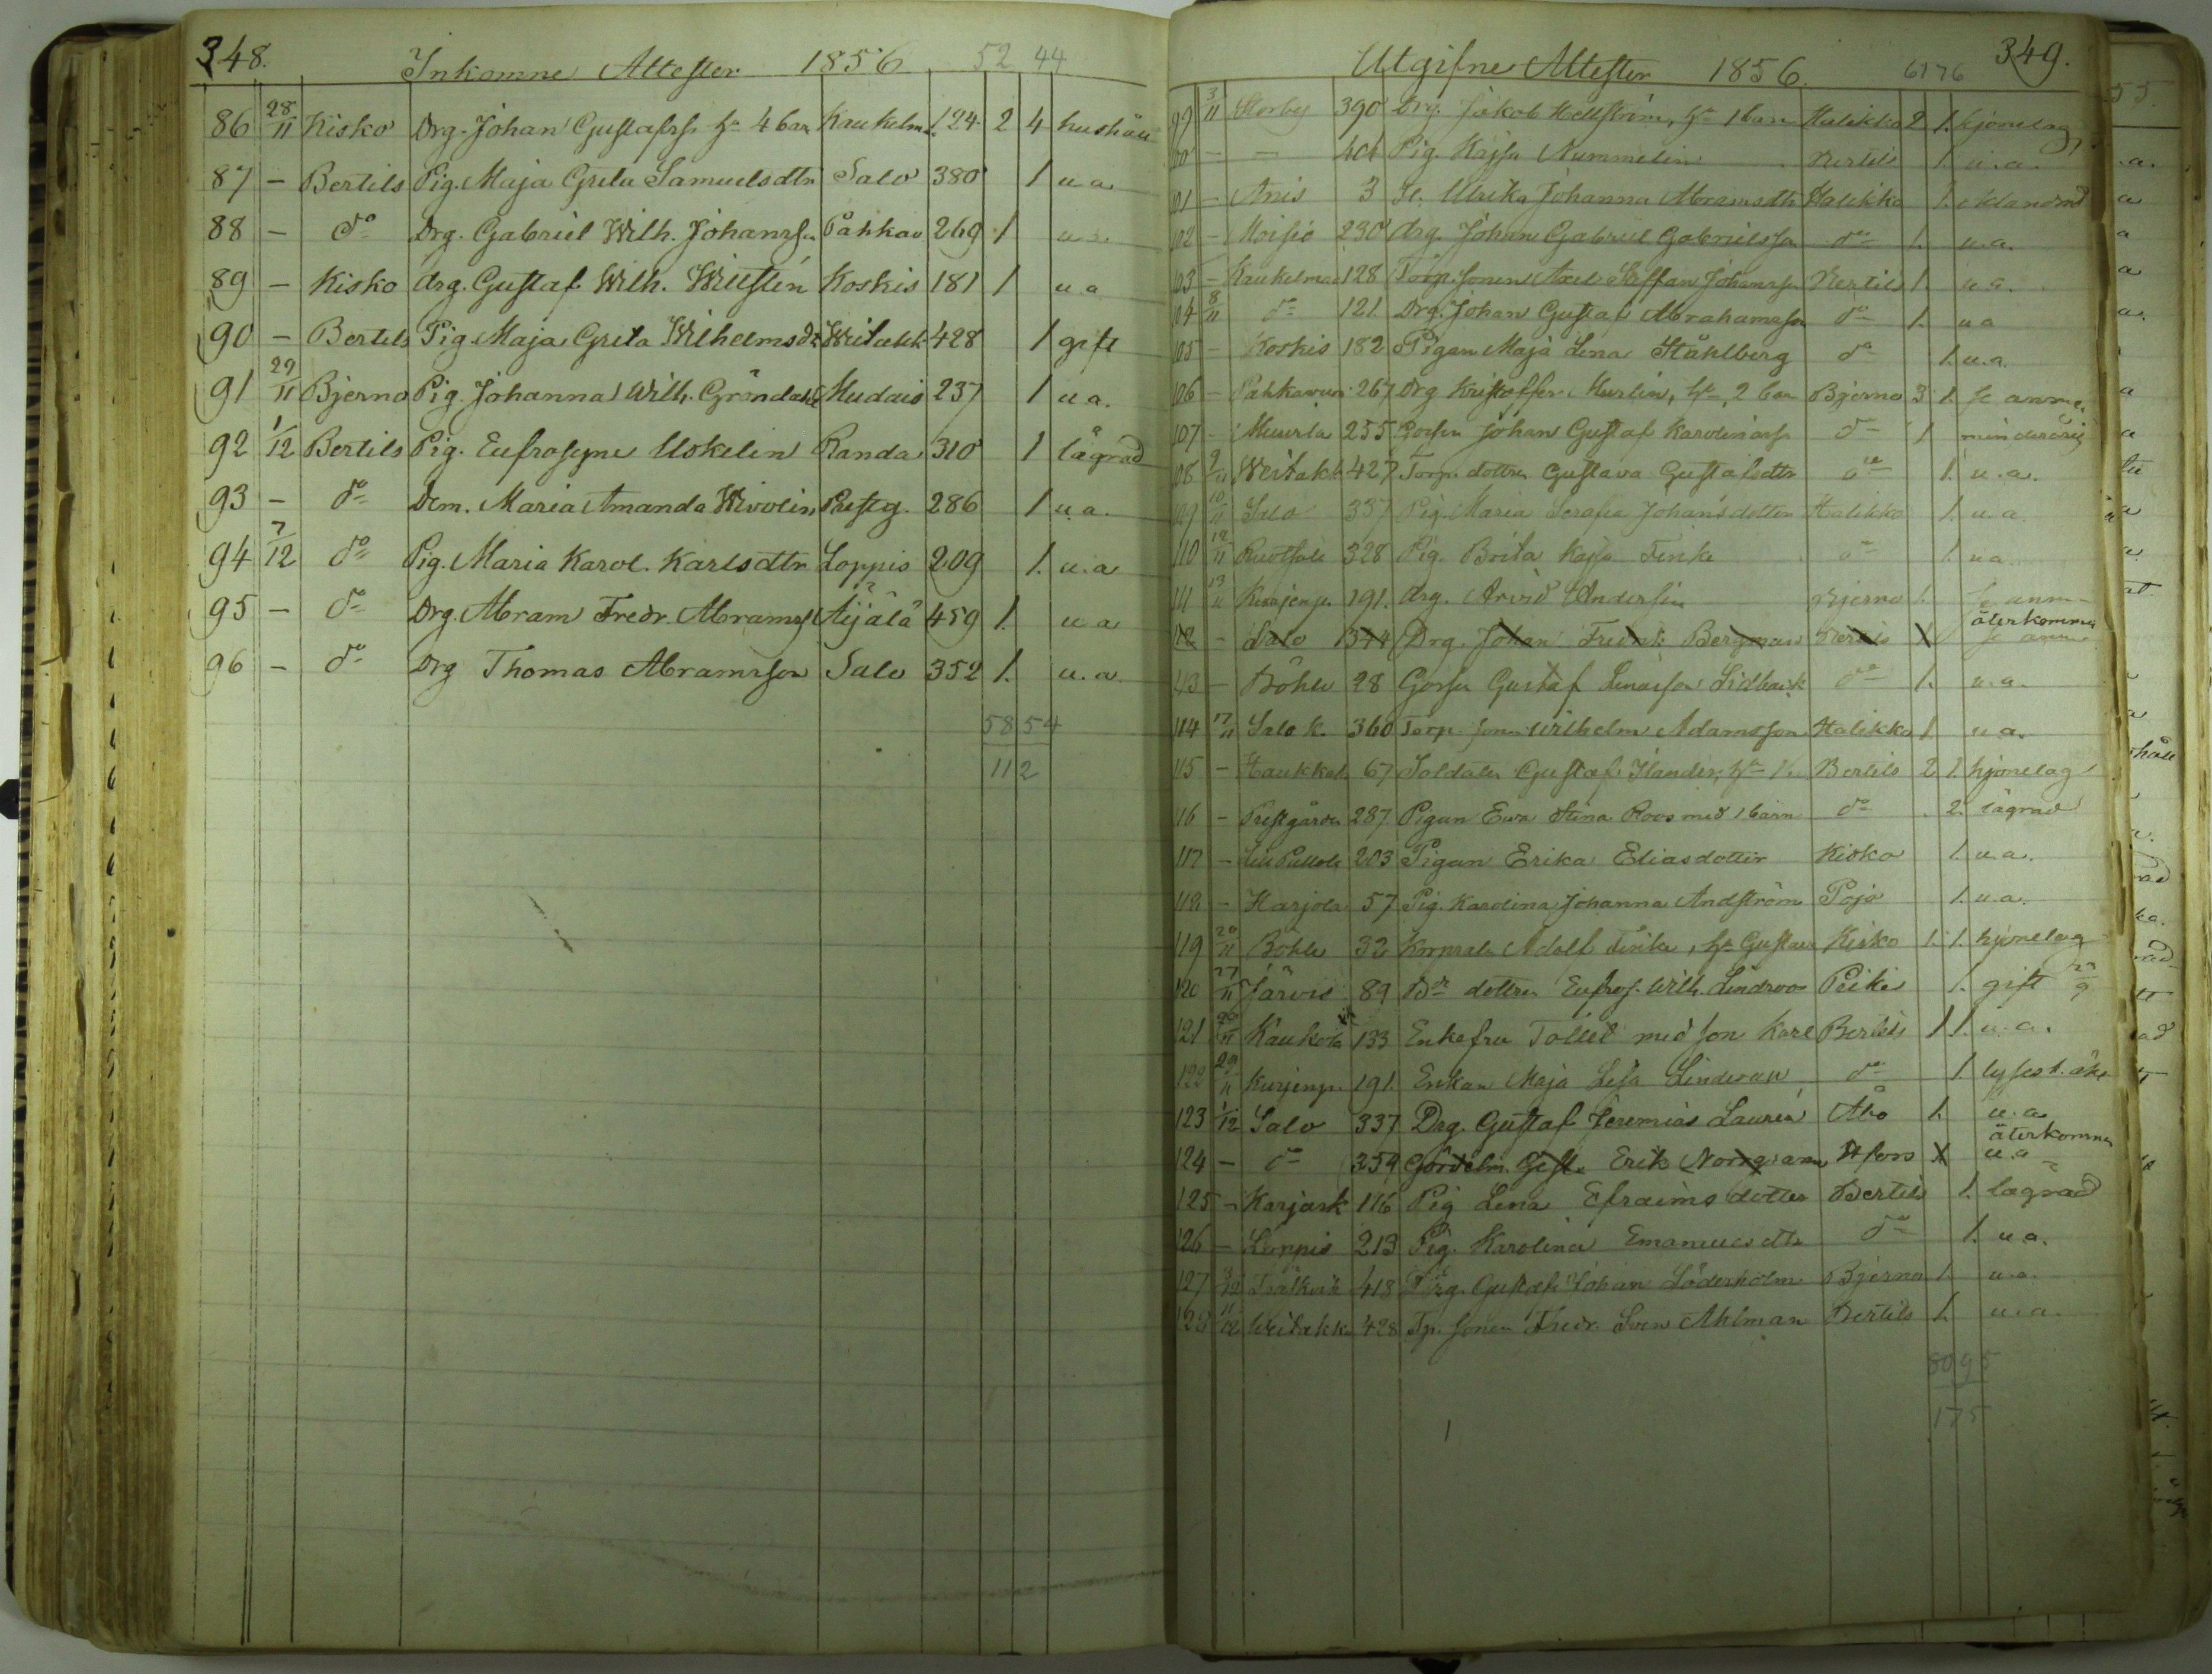 348.
Inkomne Attester 1856 52 44
86 28/11 Kisko Drg. Johan Gustafss. hu 4 barn Kaukelm. 124 2 4 hushåll
87 - Bertils Pig. Maja Greta Samuelsdtr Salo 380 1 u a
88 - do Drg. Gabriel Wilh. Johanss. Påhkav 269 1 u a.
89 - Kisko drg. Gustaf Wilh. Willstén Koskis 181 1 u a
90 - Bertils Pig. Maja Greta Wilhelmsdr Weitakk 428 1 gift
91 29/11 Bjerno Pig. Johanna Wilh. Gröndahl Mudais 237 1 u a.
92 1/12 Bertils Pig. Eufrosyne Uskelin Randa 310 1 lägrad
93 - do Dem. Maria Amanda Wivolin Prestg. 286 1 u a.
94 7/12 do Pig. Maria Karol. Karlsdtr Loppis 209 1. u. a
95 - do Drg. Abram Fredr. Abramss Äijälä 459 1. u a
96 - do Drg Thomas Abramsson Salo 352 1. u. a.
58 54
112
349.
Utgifne Attester 1856. 61 76
99 3/11 Storby 390 Drg. Jakob Hellström, hu 1 barn Halikko 2 1. hjonelag
100 - - 404 Pig. Kajsa Nummelin Bertils 1. u. a.
101 - Anis 3 Ulrika Johanna Abramsdtr Halikko 1. oklandrad
102 - Moisio 230 drg. Johan Gabriel Gabrielsson do 1. u. a.
103 - Kaukelmaa 128 Torp. sonen Axel Staffan Johansson Bertils 1. u. a.
104 8/11 do 121. Drg. Johan Gustaf Abrahamsson do 1. u a
105 - Koskis 182 Pigan Maja Lena Ståhlberg do 1. u. a.
106 - Pahkavuori 267 Drg Kristoffer Murlin, hu, 2 barn Bjerno 3 1. se anm.
107 - Muurla 255 Gossen Johan Gustaf Karolinass. do 1 minderårig
108 9/11 Weitakk 427 Torp. dottren Gustava Gustafsdtr do 1. u. a.
109 10/11 Salo 337 Pig. Maria Serafia Johansdotter Halikko 1. u. a.
110 12/11 Ruotsala 328 Pig. Brita Kajsa Finke do 1. u a.
111 13/11 Kurjenp. 191. drg. Arvid Andersin Bjerno 1. se anm.
återkommen
112 - Salo 344 Drg. Johan Fredrik Bergman Bertils 1 se anm
113 - Böhle 28 Gossen Gustaf Lenasson Lidbäck do 1. u. a.
114 17/11 Salo k. 360 Torp. sonen Wilhelm Adamsson Halikko 1 u a.
115 - Haukkal. 67 Soldaten Gustaf Ilander, hu Bertils 2 1. hjonelag
116 - Prestgården 287. Pigan Ewa Stina Roos med 1 barn do 2. lägrad
117 - Lill Pullola 203 Pigan Erika Eliasdotter Kisko 1. u. a.
118 - Harjola 57 Pig. Karolina Johanna Andström Pojo 1. u. a.
119 20/11 Böhle 32 Korpralen Adolf Finke, hu Gustava Kisko 1. 1. hjonelag
120 27/11 Järvis 89 Bde dottren Eufros. Wilh. Lindroos Peikis 1. gift 23/9
121 Kaukola 133 Enkefru Tollet med son Karl Bertils 1 1. u. a.
122 29/11 Kurjenp. 191. Enkan Maja Lisa Linderan do 1. lysest.
123 1/12 Salo 337 Drg. Gustaf Jeremias Laurén Åbo 1. u. a
återkommen
124 - do 359 Erik Norrgrann Hfors 1 u. a
125 - Karjask 116 Pig Lena Efraims dotter Bertils 1. lägrad
126 - Loppis 213 Pig. Karolina Emanuelsdtr do 1. u. a.
127 Trälkvik 418 Drg. Gustaf Johan Söderholm Bjerno 1. u. a.
128 11/12 Weitakk 428 Tp. sonen Fredr. Sven Ahlman Bertils 1. u. a.
80 95
175